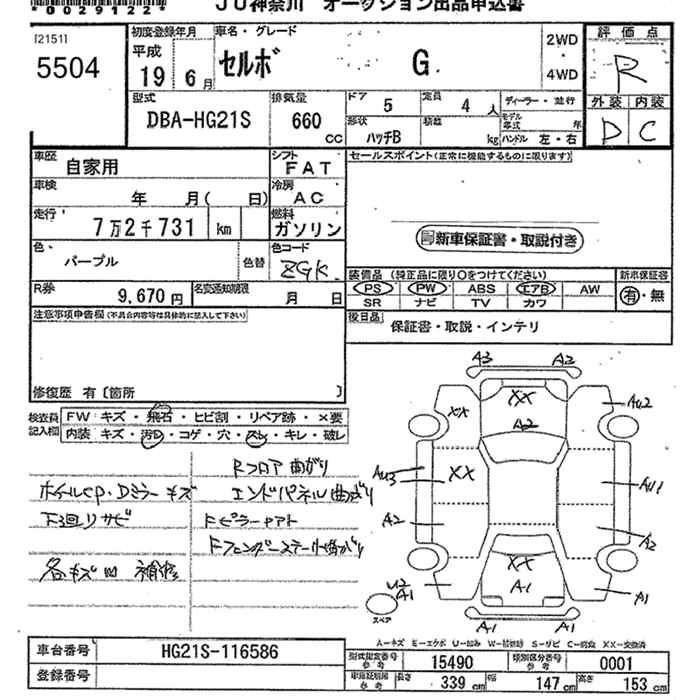 *0029122*
JU神奈川 オークション出品申込書
[2151]
5504
初度登録年月
平成
19 6月
車名・グレード
セルボ G
2WD
・
4WD
評価点
R
外装 内装
D C
型式
DBA-HG21S
排気量
660
CC
ドア 5
定員 4 人
形状 ハッチB
積載 kg
ディーラー・並行
モデル年式 年
ハンドル 左・右
車歴
自家用
シフト
FAT
車検
年 月( 日)
冷房
AC
走行
7万2千731 km
燃料
ガソリン
色
パープル
色替
色コード
ZGK
R券
9,670円
名変通知期限
月 日
セールスポイント(正常に機能するものに限ります)
新車保証書・取説付き
装備品 (純正品に限り○をつけてください)
新車保証書
PS PW ABS エアB AW
SR ナビ TV カワ
有・無
後日品
保証書・取説・インテリ
注意事項申告欄(不具合内容等は具体的に記入して下さい)
修復歴 有〔箇所 〕
検査員
記入欄
FW キズ・飛石・ヒビ割・リペア跡・×要
内装 キズ・汚れ・コゲ・穴・スレ・キレ・破レ
Rフロア曲がり
ホイールCP・Dミラーキズ
エンドパネル曲がり
下廻りサビ
各キズ凹 補修
A3 A2
XX
XX
AU2
A2
AU3
XX
AU1
A2
A2
XX
A1
U2
A1
A1
A1 A1
スペア
A-キズ E-エクボ U-凹み W-補修跡 S-サビ C-腐食 XX-交換済
車台番号
HG21S-116586
登録番号
型式指定番号
参考
15490
類別区分番号
参考
0001
車庫証明用
参考
長さ 339 cm
幅 147 cm
高さ 153 cm